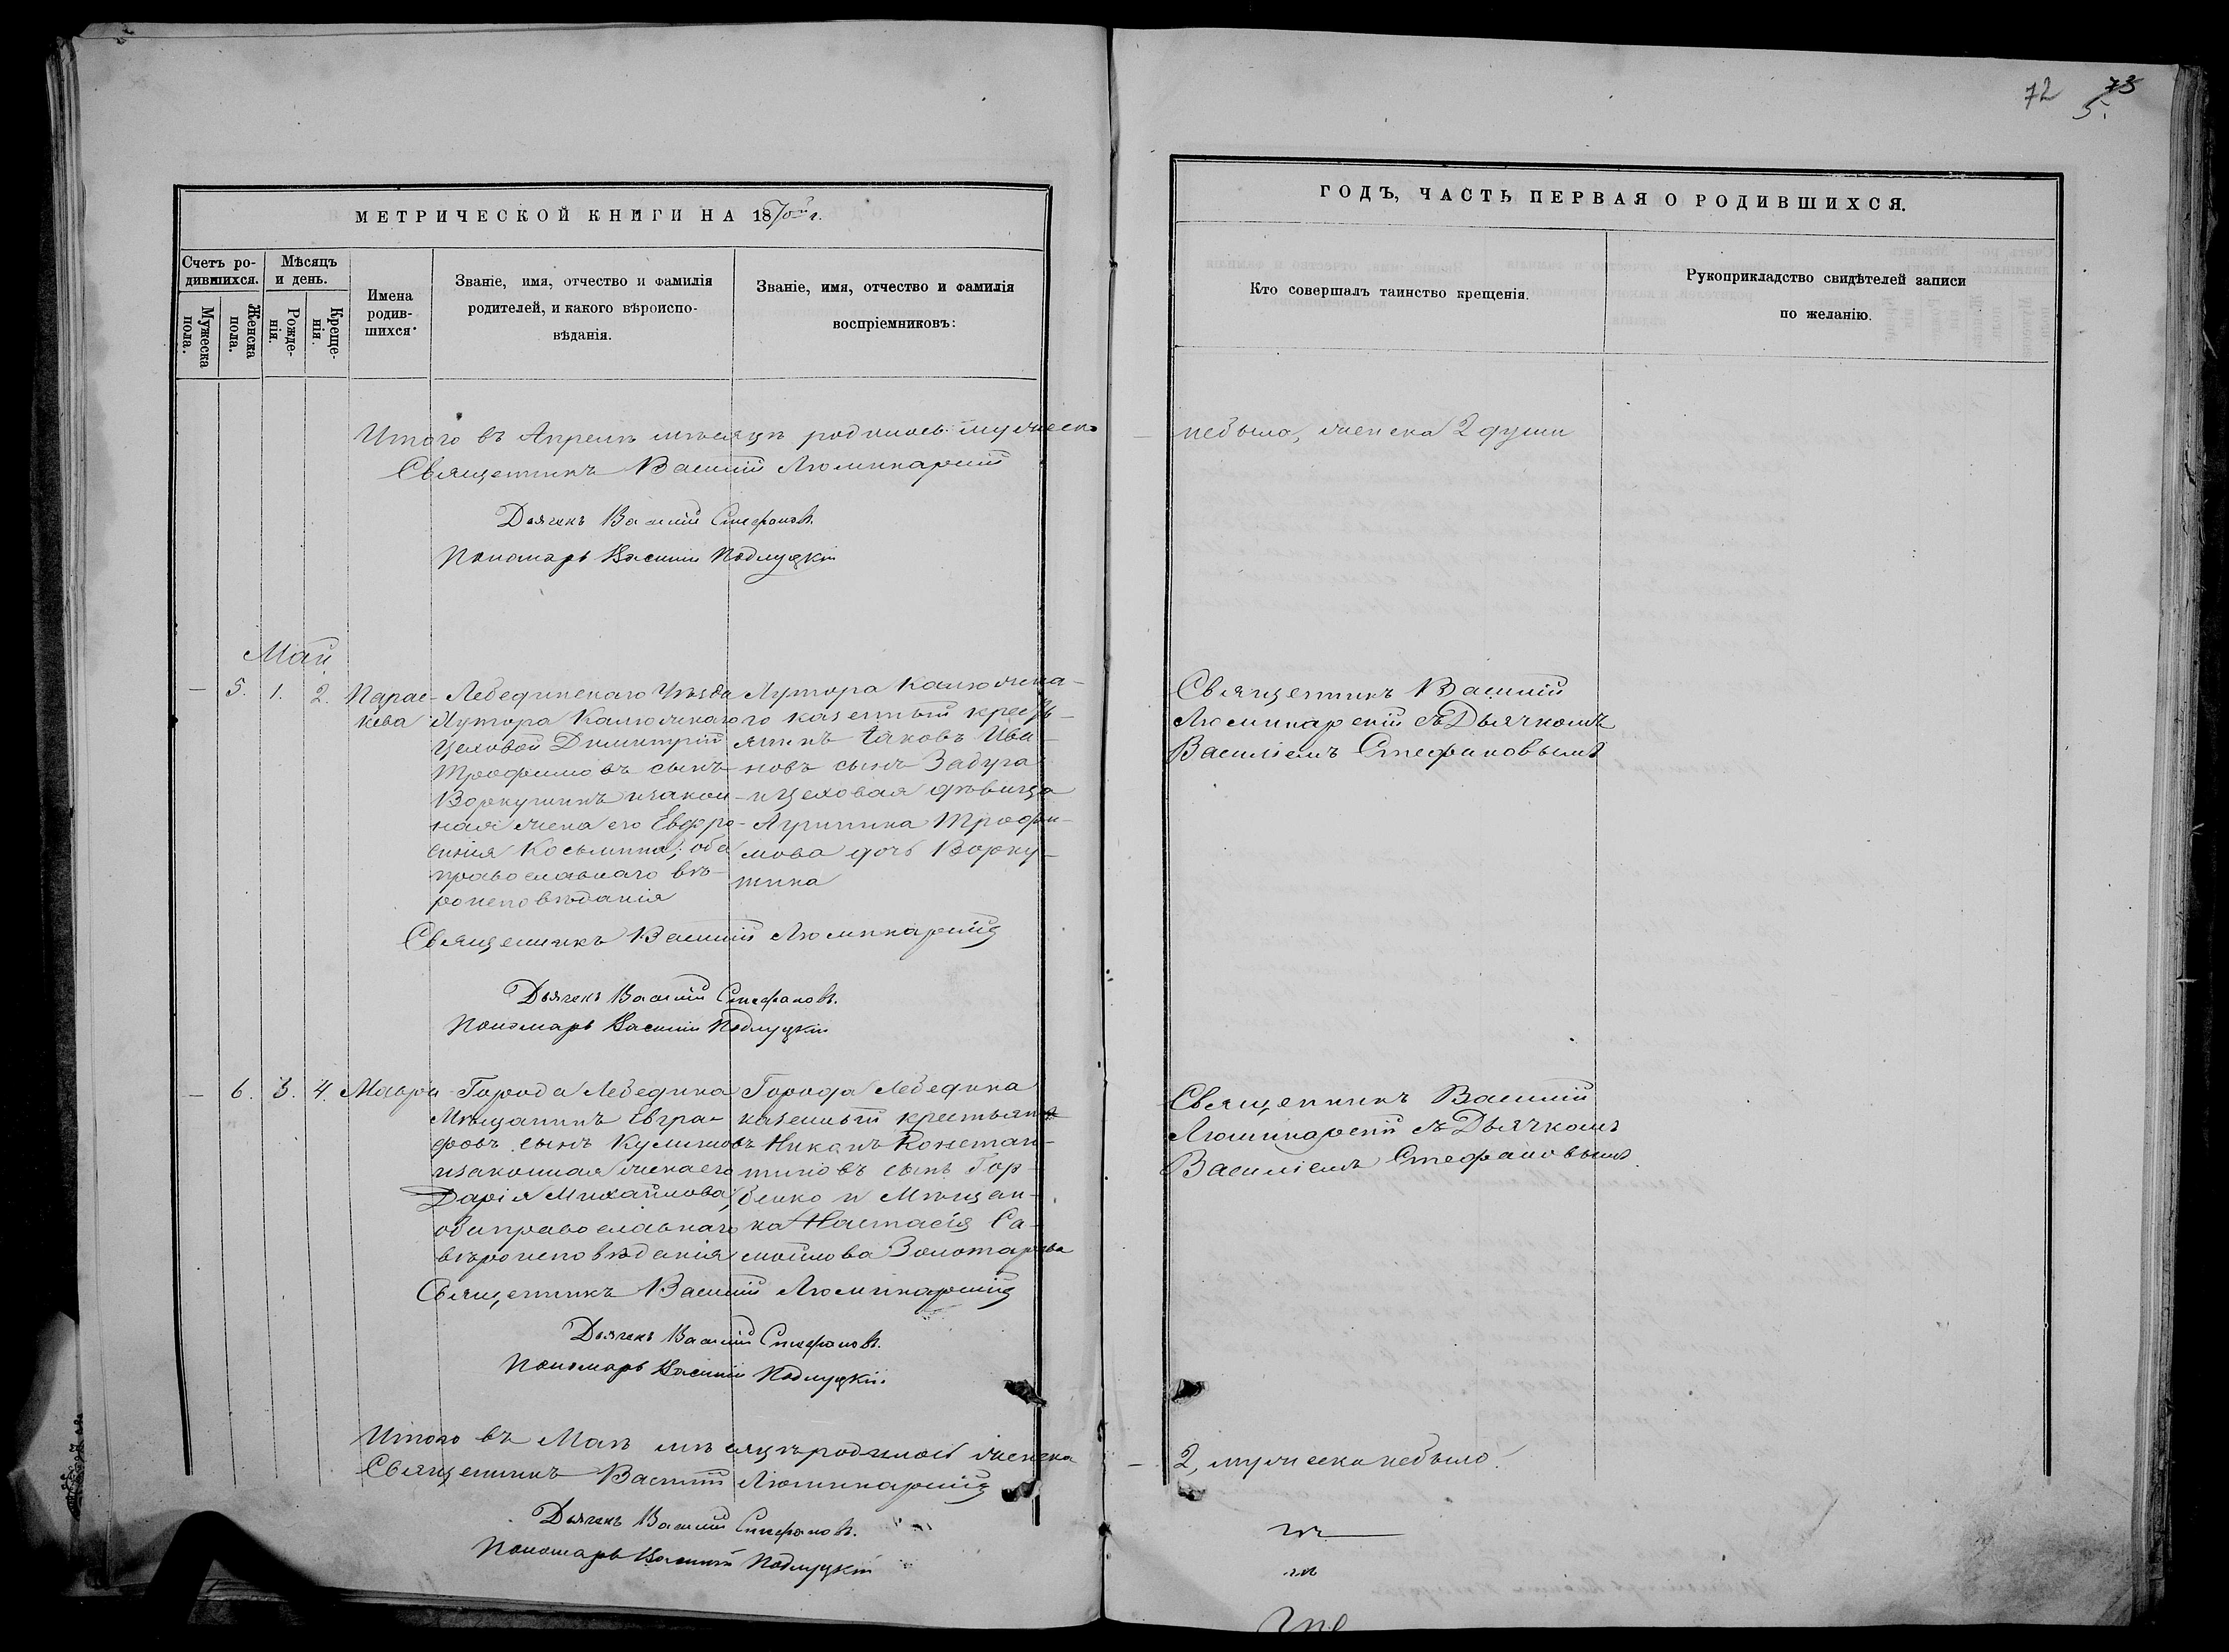 72 73
5.
МЕТРИЧЕСКОЙ КНИГИ НА 1870й г.
ГОДЪ, ЧАСТЬ ПЕРВАЯ О РОДИВШИХСЯ.
Счетъ ро-
дившихся.
Мужеска пола.
Женска пола.
Мѣсяцъ
и день.
Рожде-
нія.
Креще-
нія.
Имена
родив-
шихся.
Званіе, имя, отчество и фамилія
родителей, и какого вѣроиспо-
вѣданія.
Званіе, имя, отчество и фамилія
воспріемниковъ:
Кто совершалъ таинство крещенія.
Рукоприкладство свидѣтелей записи
по желанію.
Итого въ Апрелѣ мѣсяцѣ родилось: мужеска
небыло, женска 2 души
Священникъ Василій Люминарскій
Дьячекъ Василій Стефановъ.
Пономарь Василій Подлуцкій
Май
— 5. 1. 2. Парас-
кева
Лебединскаго Уѣзда
Хутора Калюжнаго
Цеховой Димитрій
Трофимовъ сынъ
Воркутинъ и закон-
ная жена его Евфро-
синія Косьмина; оба
православнаго вѣ-
роисповѣданія
Хутора Калюжна-
го казенный кресть-
янинъ Іаковъ Ива-
новъ сынъ Задуга
и Цеховая дѣвица
Агрипина Трофи-
мова дочь Ворку-
тина
Священникъ Василій
Люминарскій съ Дьячкомъ
Василіемъ Стефановымъ
Священникъ Василій Люминарскій
Дьячекъ Василій Стефановъ.
Пономарь Василій Подлуцкій
— 6. 3. 4. Мавра
Города Лебедина
Мѣщанинъ Евгра-
фовъ сынъ Кулишовъ
и законная жена его
Дарія Михайлова,
оба православнаго
вѣроисповѣданія
Города Лебедина
казенный крестьян
Никанъ Констан-
тиновъ сынъ Гор-
бенко и Мѣщан-
ка Настасія Са-
мойлова Золотарева
Священникъ Василій
Люминарскій съ Дьячкомъ
Василіемъ Стефановымъ.
Священникъ Василій Люминарскій
Дьячекъ Василій Стефановъ.
Пономарь Василій Подлуцкій.
Итого въ Маѣ мѣсяцѣ родилось женска
2, мужеска небыло.
Священникъ Василій Люминарскій
Дьячекъ Василій Стефановъ.
Пономарь Василій Подлуцкій